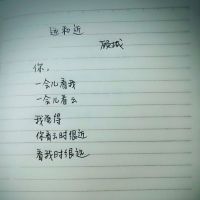 远和近
顾城
你,
一会儿看我
一会儿看云
我觉得
你看云时很近
看我时很远